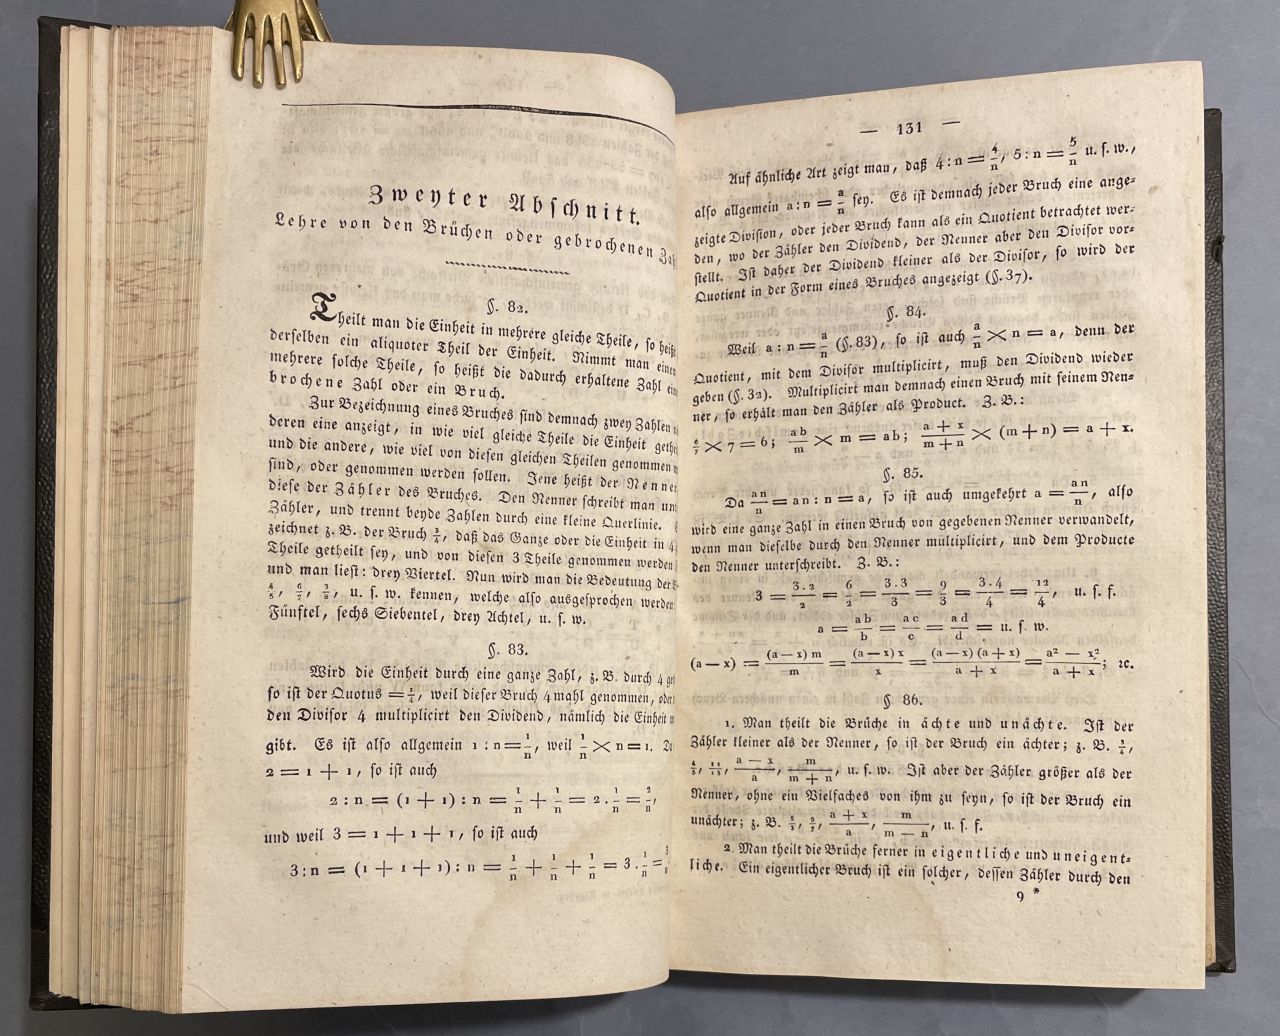 Zweyter Abschnitt.
Lehre von den Brüchen oder gebrochenen Zah
§. 82.
Theilt man die Einheit in mehrere gleiche Theile, so heißt
derselben ein aliquoter Theil der Einheit. Nimmt man einen
mehrere solche Theile, so heißt die dadurch erhaltene Zahl ein
brochene Zahl oder ein Bruch.
Zur Bezeichnung eines Bruches sind demnach zwey Zahlen
deren eine anzeigt, in wie viel gleiche Theile die Einheit gethe
und die andere, wie viel von diesen gleichen Theilen genommen
sind, oder genommen werden sollen. Jene heißt der Nenner
diese der Zähler des Bruches. Den Nenner schreibt man unt
Zähler, und trennt beyde Zahlen durch eine kleine Querlinie.
zeichnet z. B. der Bruch 3/4, daß das Ganze oder die Einheit in 4
Theile getheilt sey, und von diesen 3 Theile genommen werden
und man liest: drey Viertel. Nun wird man die Bedeutung der
4/5, 6/7, 3/8, u. s. w. kennen, welche also ausgesprochen werden
Fünftel, sechs Siebentel, drey Achtel, u. s. w.
§. 83.
Wird die Einheit durch eine ganze Zahl, z. B. durch 4 get
so ist der Quotus = 1/4, weil dieser Bruch 4 mahl genommen, oder
den Divisor 4 multiplicirt den Dividend, nämlich die Einheit
gibt. Es ist also allgemein 1 : n = 1/n, weil 1/n × n = 1. Da
2 = 1 + 1, so ist auch
2 : n = (1 + 1) : n = 1/n + 1/n = 2 . 1/n = 2/n,
und weil 3 = 1 + 1 + 1, so ist auch
3 : n = (1 + 1 + 1) : n = 1/n + 1/n + 1/n = 3 . 1/n = 3
— 131 —
Auf ähnliche Art zeigt man, daß 4 : n = 4/n, 5 : n = 5/n u. s. w.,
also allgemein a : n = a/n sey. Es ist demnach jeder Bruch eine ange-
zeigte Division, oder jeder Bruch kann als ein Quotient betrachtet wer-
den, wo der Zähler den Dividend, der Nenner aber den Divisor vor-
stellt. Ist daher der Dividend kleiner als der Divisor, so wird der
Quotient in der Form eines Bruches angezeigt (§. 37).
§. 84.
Weil a : n = a/n (§. 83), so ist auch a/n × n = a, denn der
Quotient, mit dem Divisor multiplicirt, muß den Dividend wieder
geben (§. 32). Multiplicirt man demnach einen Bruch mit seinem Nen-
ner, so erhält man den Zähler als Product. Z. B.:
6/7 × 7 = 6; ab/m × m = ab; (a + x)/(m + n) × (m + n) = a + x.
§. 85.
Da an/n = an : n = a, so ist auch umgekehrt a = an/n, also
wird eine ganze Zahl in einen Bruch von gegebenen Nenner verwandelt,
wenn man dieselbe durch den Nenner multiplicirt, und dem Producte
den Nenner unterschreibt. Z. B.:
3 = 3.2/2 = 6/2 = 3.3/3 = 9/3 = 3.4/4 = 12/4, u. s. f.
a = ab/b = ac/c = ad/d = u. s. w.
(a — x) = (a — x) m/m = (a — x) x/x = (a — x) (a + x)/(a + x) = (a² — x²)/(a + x); ꝛc.
§. 86.
1. Man theilt die Brüche in ächte und unächte. Ist der
Zähler kleiner als der Nenner, so ist der Bruch ein ächter; z. B. 3/4,
4/5, 11/15, (a — x)/a, m/(m + n), u. s. w. Ist aber der Zähler größer als der
Nenner, ohne ein Vielfaches von ihm zu seyn, so ist der Bruch ein
unächter; z. B. 5/3, 9/7, (a + x)/a, m/(m — n), u. s. f.
2. Man theilt die Brüche ferner in eigentliche und uneigent-
liche. Ein eigentlicher Bruch ist ein solcher, dessen Zähler durch den
9 *